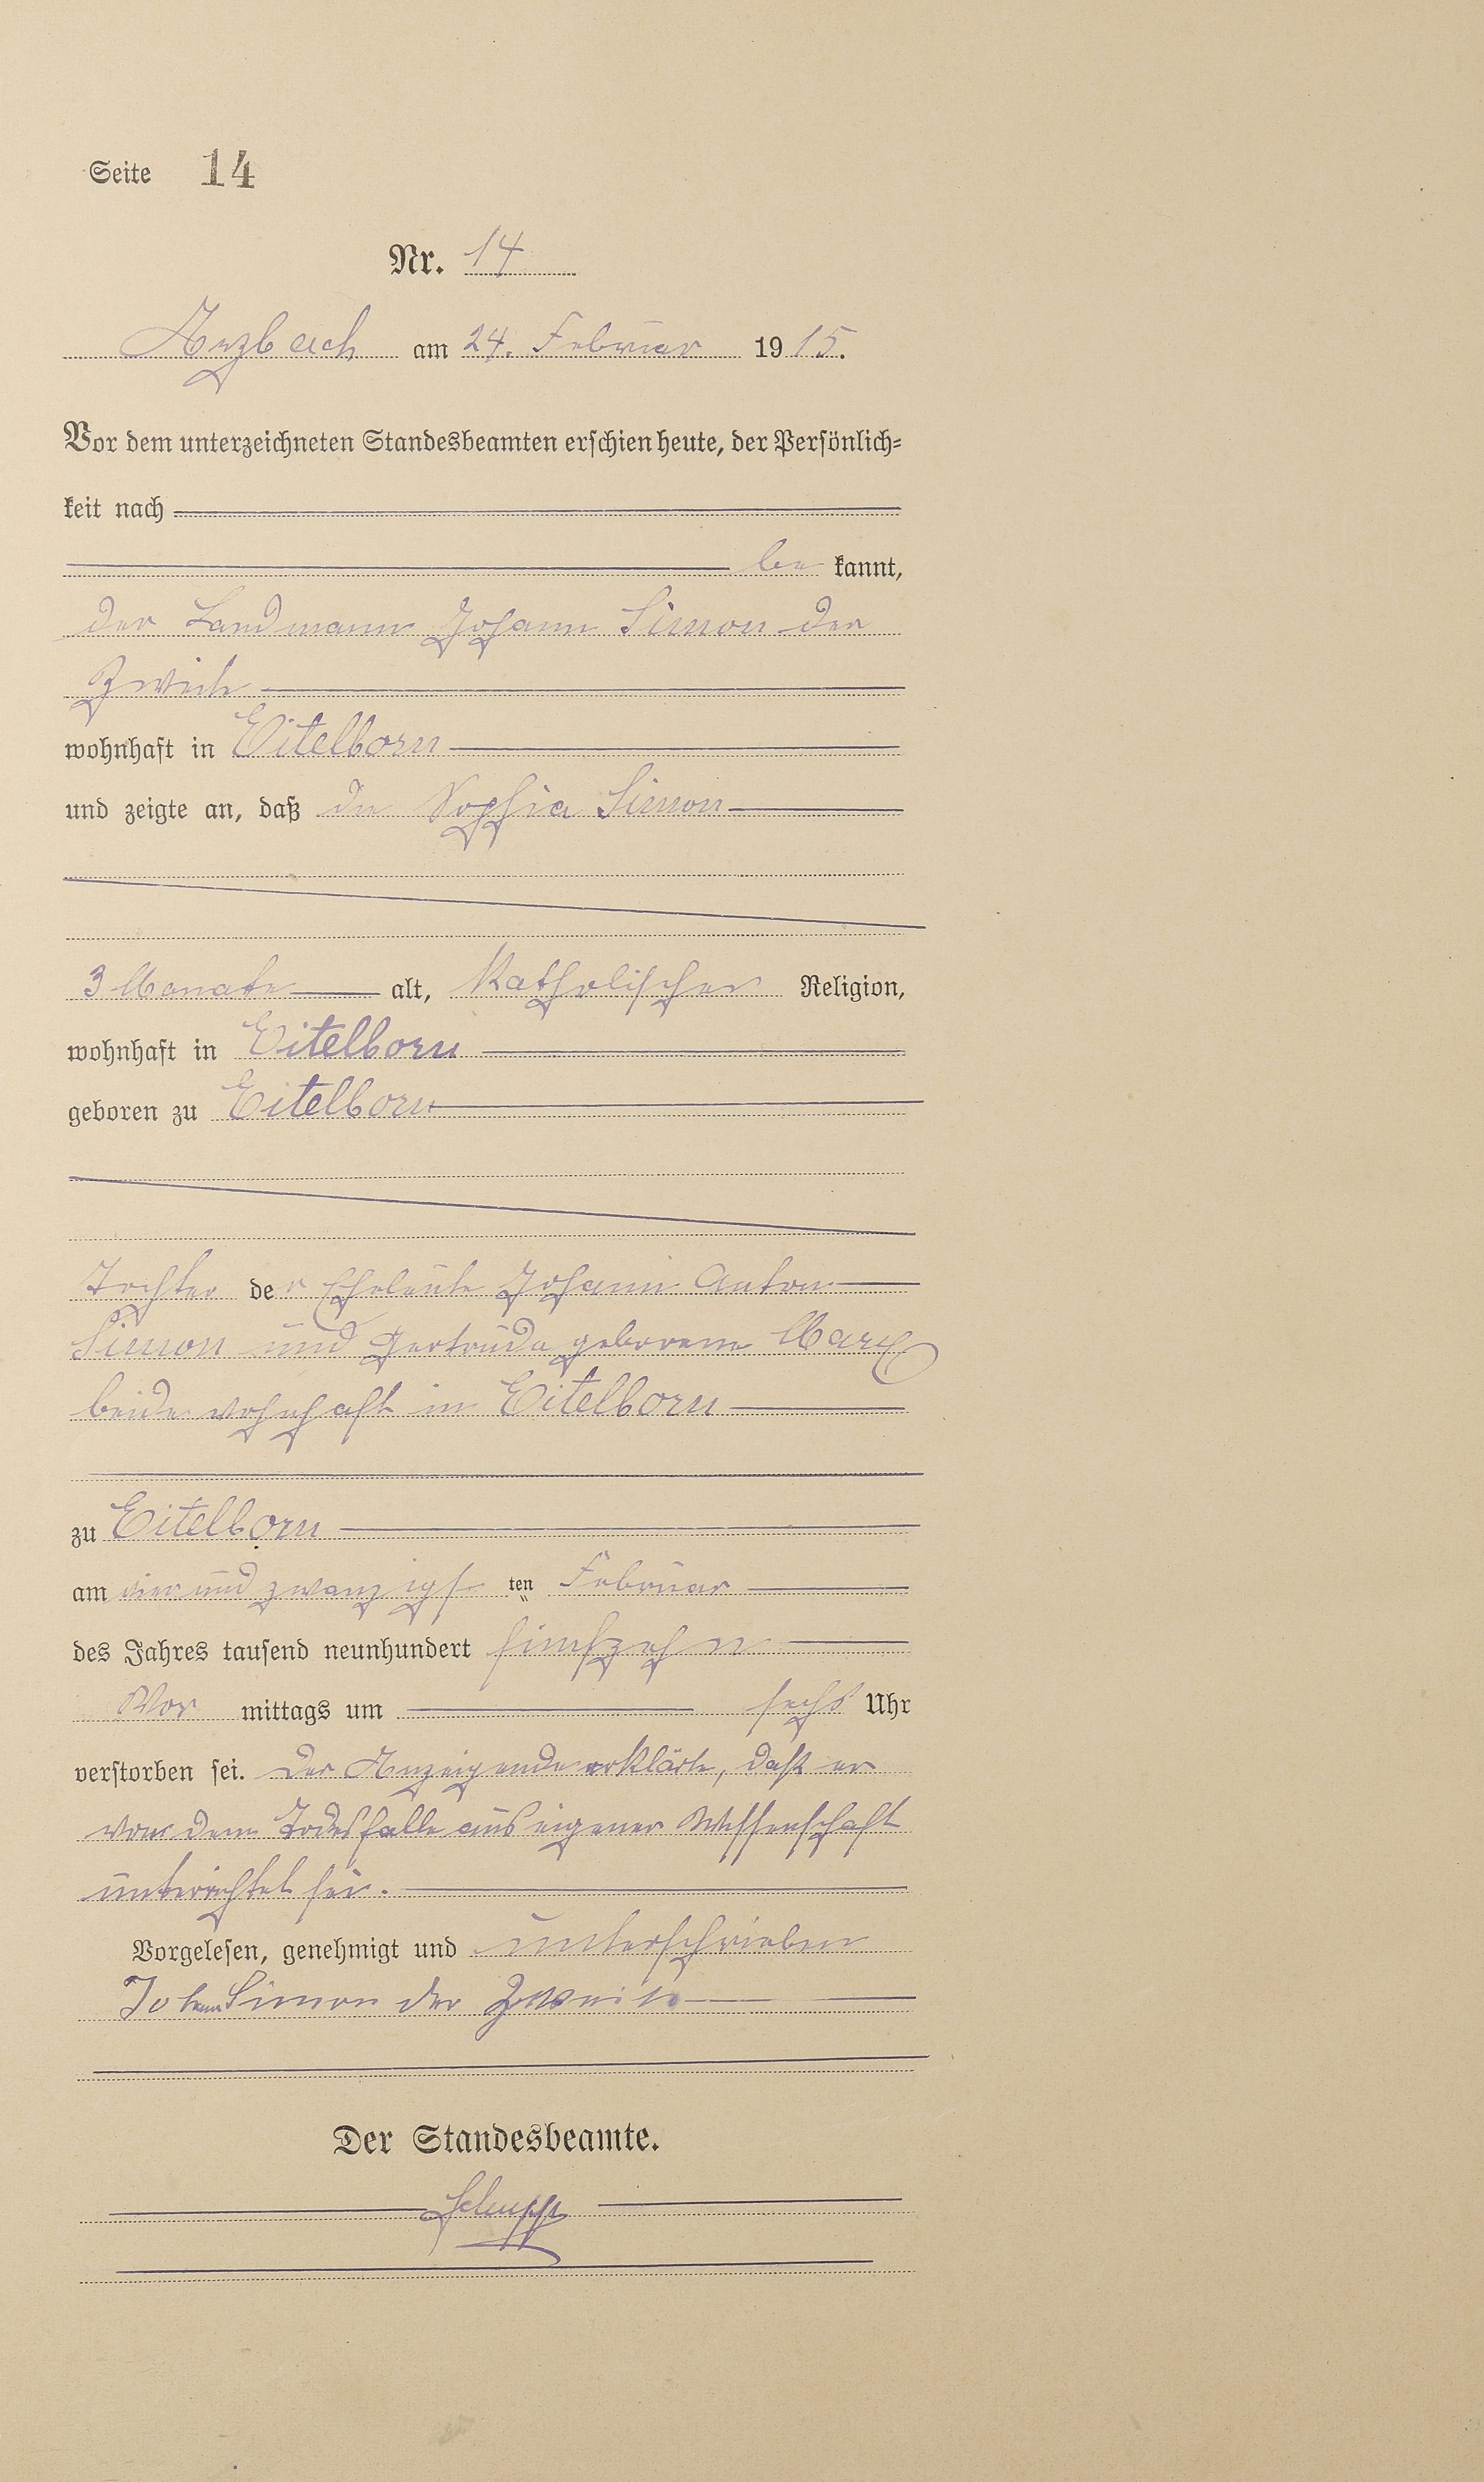 Seite 14
Nr. 14
Arzbach am 24. Februar 1915.
Vor dem unterzeichneten Standesbeamten erschien heute, der Persönlich-
keit nach
be kannt,
der Landmann Johann Simon der
Zweite
wohnhaft in Eitelborn
und zeigte an, daß die Sophia Simon
3 Monate alt, katholischer Religion,
wohnhaft in Eitelborn
geboren zu Eitelborn
Tochter der Eheleute Johann Anton
Simon und Gertrude geborene Marx
beide wohnhaft in Eitelborn
zu Eitelborn
am vier und zwanzigs ten Februar
des Jahres tausend neunhundert fünfzehn
Vor mittags um sechs Uhr
verstorben sei. Der Anzeigende erklärte, daß er
von dem Todesfalle aus eigener Wissenschaft
unterrichtet sei.
Vorgelesen, genehmigt und unterschrieben
Johann Simon der Zweite
Der Standesbeamte.
Schupp